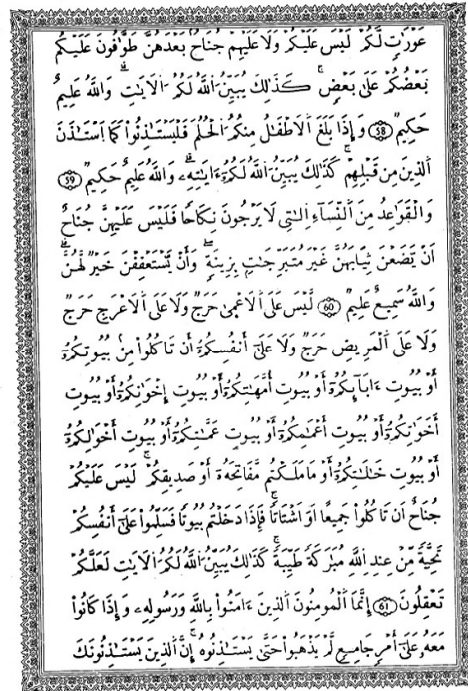 عَوْرَٰتٍ لَّكُمْ لَيْسَ عَلَيْكُمْ وَلَا عَلَيْهِمْ جُنَاحٌۢ بَعْدَهُنَّ طَوَّٰفُونَ عَلَيْكُم
بَعْضُكُمْ عَلَىٰ بَعْضٍ كَذَٰلِكَ يُبَيِّنُ اللَّهُ لَكُمُ الْآيَٰتِ وَاللَّهُ عَلِيمٌ
حَكِيمٌ 58 وَإِذَا بَلَغَ الْأَطْفَٰلُ مِنكُمُ الْحُلُمَ فَلْيَسْتَٰذِنُوا كَمَا اسْتَٰذَنَ
الَّذِينَ مِن قَبْلِهِمْ كَذَٰلِكَ يُبَيِّنُ اللَّهُ لَكُمْ ءَايَٰتِهِ وَاللَّهُ عَلِيمٌ حَكِيمٌ 59
وَالْقَوَٰعِدُ مِنَ النِّسَاءِ الَّٰتِي لَا يَرْجُونَ نِكَاحًا فَلَيْسَ عَلَيْهِنَّ جُنَاحٌ
أَن يَضَعْنَ ثِيَابَهُنَّ غَيْرَ مُتَبَرِّجَٰتٍ بِزِينَةٍ وَأَن يَسْتَعْفِفْنَ خَيْرٌ لَّهُنَّ
وَاللَّهُ سَمِيعٌ عَلِيمٌ 60 لَّيْسَ عَلَى الْأَعْمَىٰ حَرَجٌ وَلَا عَلَى الْأَعْرَجِ حَرَجٌ
وَلَا عَلَى الْمَرِيضِ حَرَجٌ وَلَا عَلَىٰ أَنفُسِكُمْ أَن تَاكُلُوا مِنۢ بُيُوتِكُمْ
أَوْ بُيُوتِ ءَابَائِكُمْ أَوْ بُيُوتِ أُمَّهَٰتِكُمْ أَوْ بُيُوتِ إِخْوَٰنِكُمْ أَوْ بُيُوتِ
أَخَوَٰتِكُمْ أَوْ بُيُوتِ أَعْمَٰمِكُمْ أَوْ بُيُوتِ عَمَّٰتِكُمْ أَوْ بُيُوتِ أَخْوَٰلِكُمْ
أَوْ بُيُوتِ خَٰلَٰتِكُمْ أَوْ مَا مَلَكْتُم مَّفَاتِحَهُ أَوْ صَدِيقِكُمْ لَيْسَ عَلَيْكُمْ
جُنَاحٌ اَن تَاكُلُوا جَمِيعًا اَوَ اَشْتَاتًا فَإِذَا دَخَلْتُم بُيُوتًا فَسَلِّمُوا عَلَىٰ أَنفُسِكُمْ
تَحِيَّةً مِّنْ عِندِ اللَّهِ مُبَٰرَكَةً طَيِّبَةً كَذَٰلِكَ يُبَيِّنُ اللَّهُ لَكُمُ الْآيَٰتِ لَعَلَّكُمْ
تَعْقِلُونَ 61 إِنَّمَا الْمُومِنُونَ الَّذِينَ ءَامَنُوا بِاللَّهِ وَرَسُولِهِ وَإِذَا كَانُوا
مَعَهُ عَلَىٰ أَمْرٍ جَامِعٍ لَّمْ يَذْهَبُوا حَتَّىٰ يَسْتَٰذِنُوهُ إِنَّ الَّذِينَ يَسْتَٰذِنُونَكَ